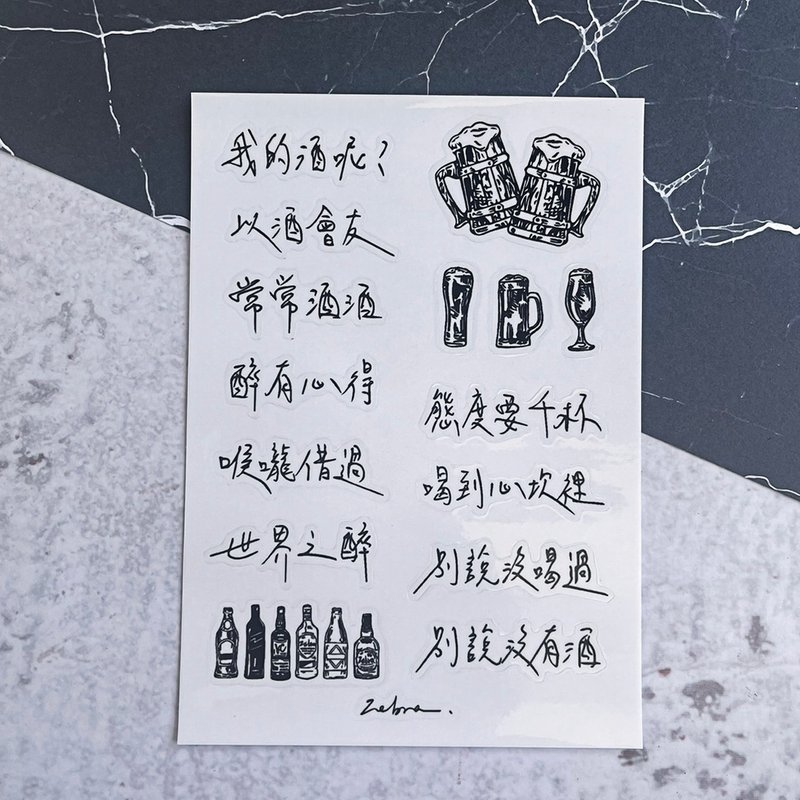 我的酒呢?
以酒會友
常常酒酒
醉有心得
喉嚨借過
世界之醉
態度要千杯
喝到心坎裡
別說沒喝過
別說沒有酒
Zebra.